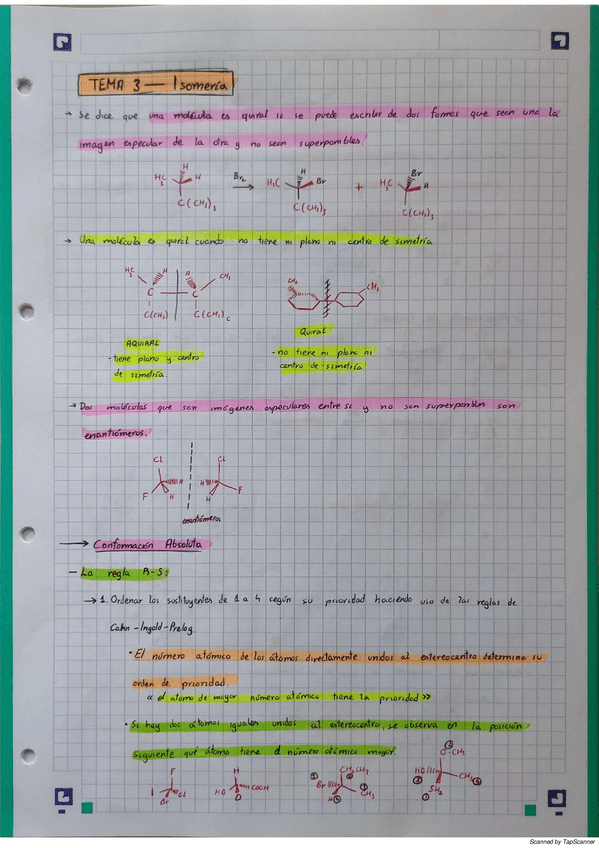 TEMA 3 — Isomería
→ Se dice que una molécula es quiral si se puede escribir de dos formas que sean una la
imagen especular de la otra y no sean superponibles.
H
H3C H Br2 H3C H Br + H3C Br H
C(CH3)3 C(CH3)3 C(CH3)3
→ Una molécula es quiral cuando no tiene ni plano ni centro de simetría
H3C H H CH3 CH3 CH3
C C
C(CH3) C(CH3)C
AQUIRAL Quiral
- tiene plano y centro - no tiene ni plano ni
de simetría. centro de simetría
→ Dos moléculas que son imágenes especulares entre si y no son superponibles son
enantiómeros.
Cl Cl
H H
F H H F
enantiómeros
→ Conformación Absoluta
- La regla R-S:
→ 1. Ordenar los sustituyentes de 1 a 4 según su prioridad haciendo uso de las reglas de
Cahn-Ingold-Prelog.
• El número atómico de los átomos directamente unidos al estereocentro determina su
orden de prioridad.
« el átomo de mayor número atómico tiene la prioridad »
• Si hay dos átomos iguales unidos al estereocentro, se observa en la posición
siguiente qué átomo tiene el número atómico mayor.
F H CH2CH3 O-CH3
I Cl HO COOH Br CH3 HO CH3
Br D H SH2
Scanned by TapScanner